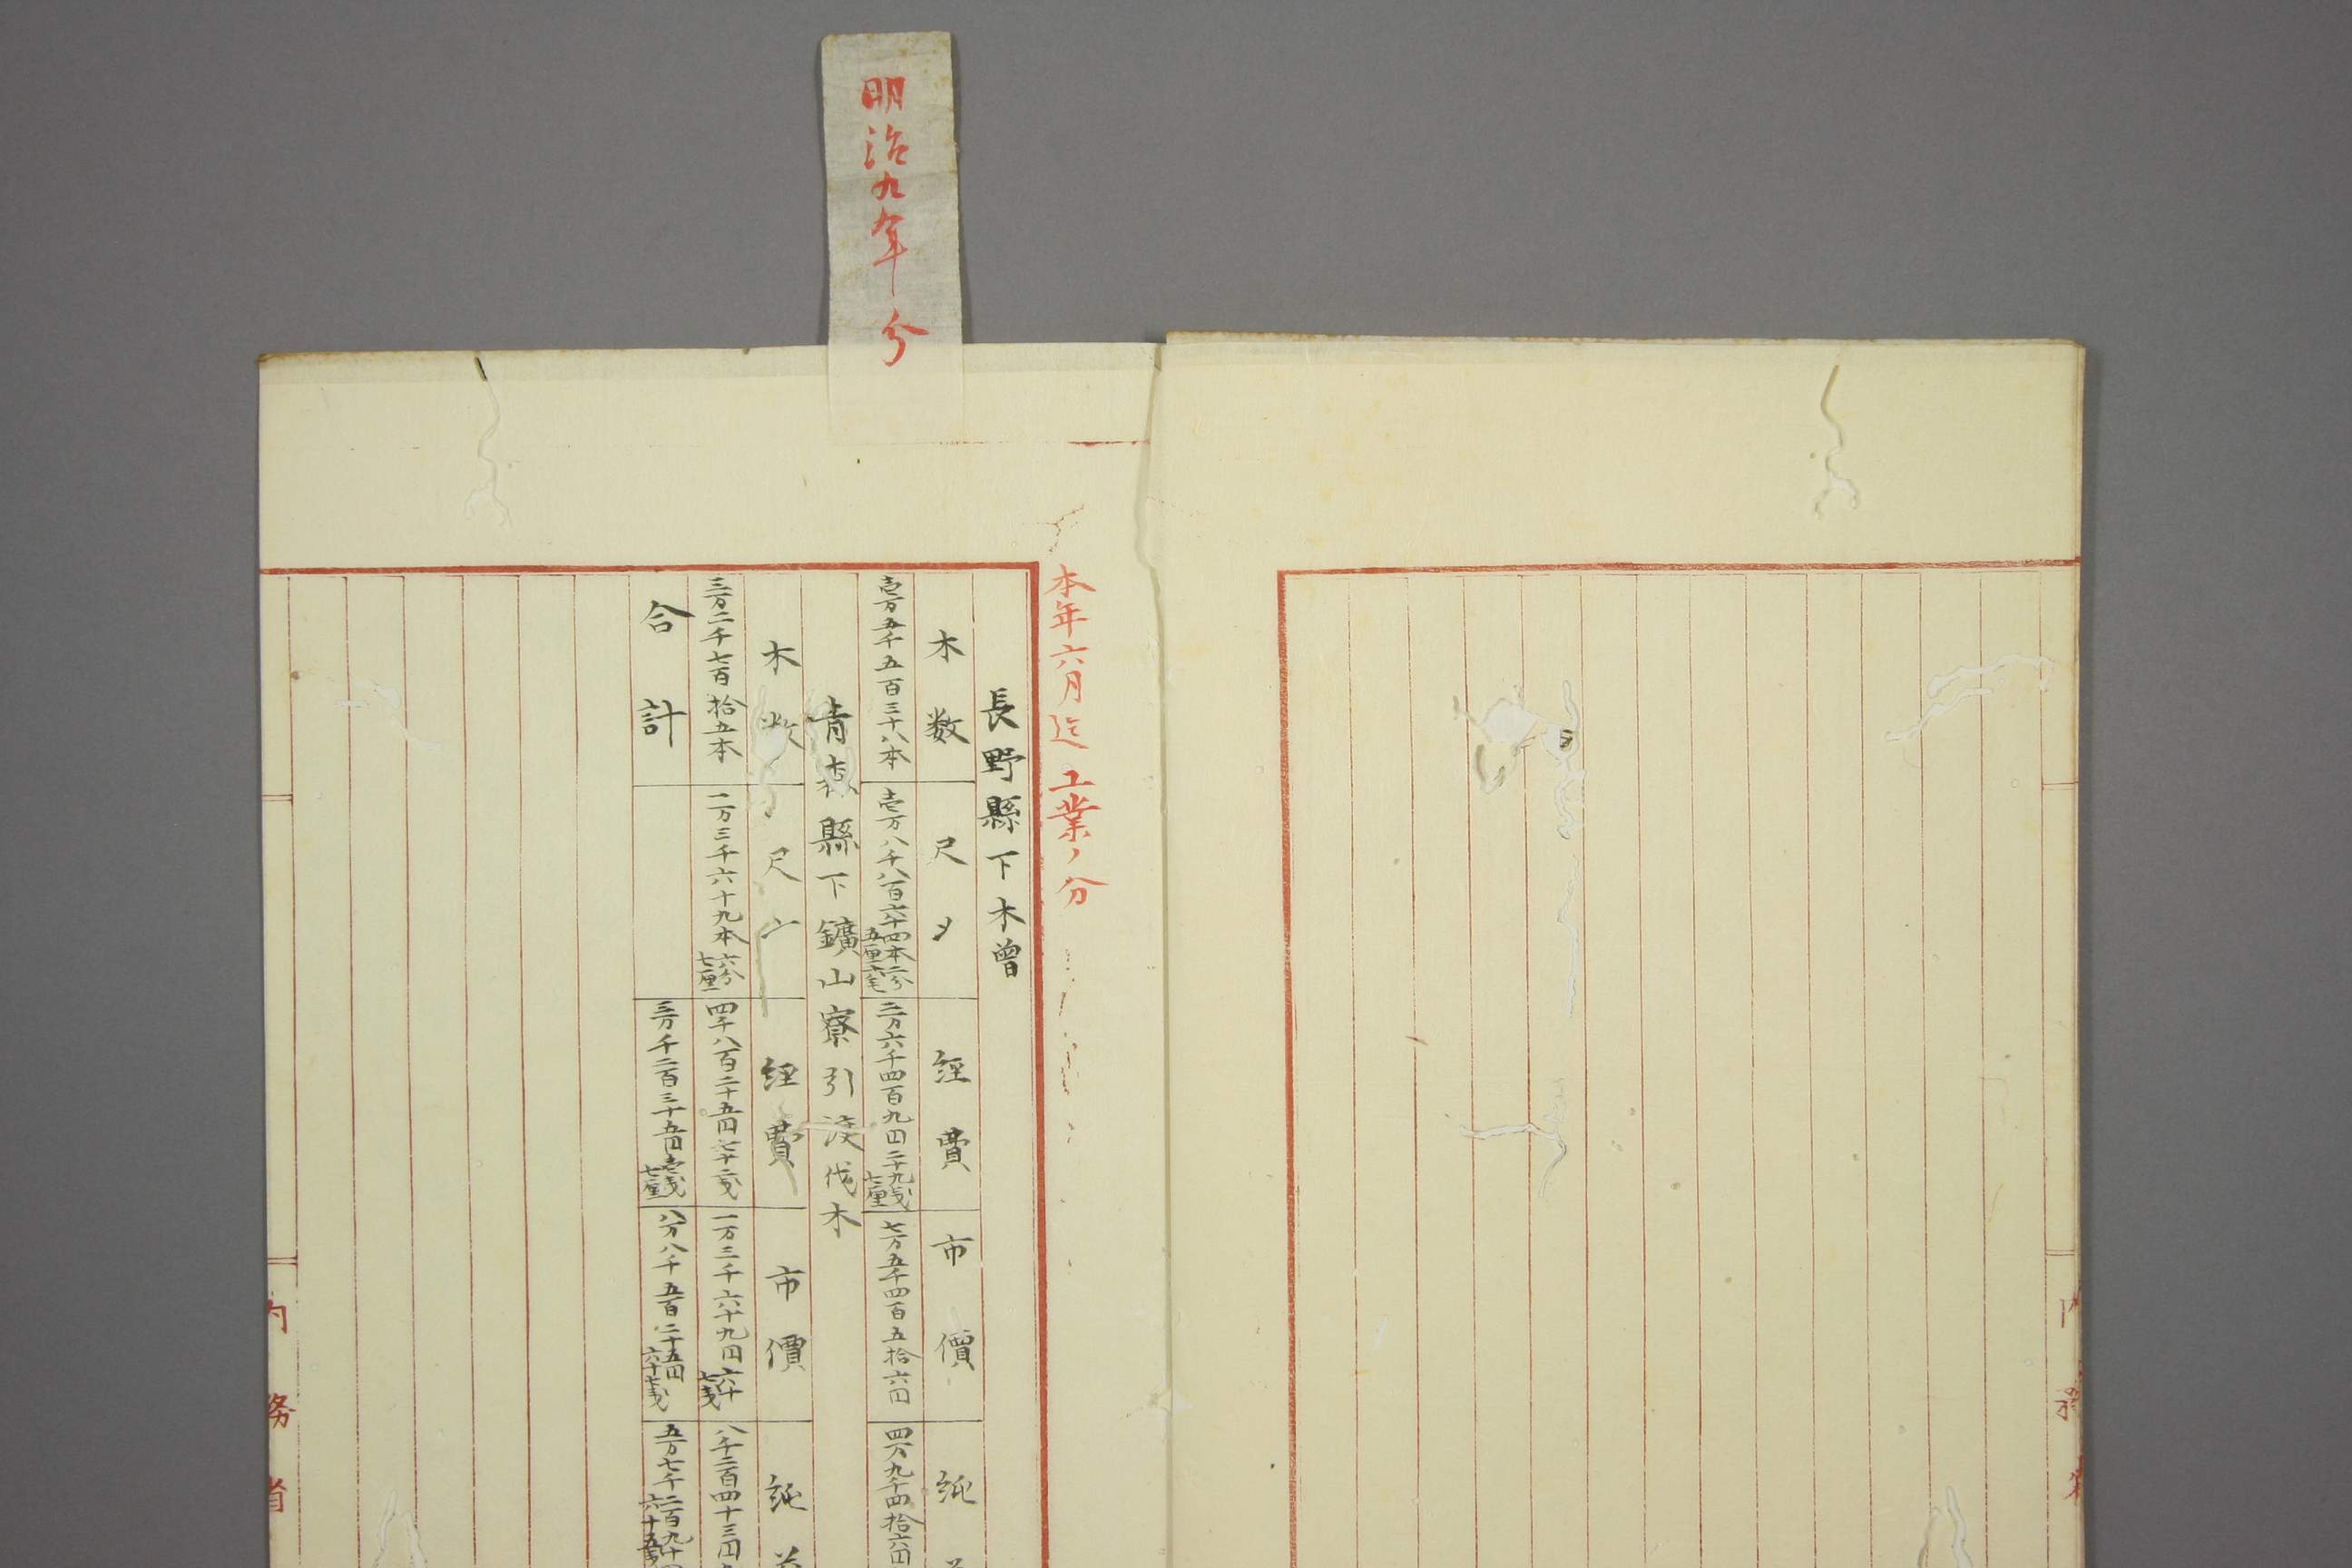 明治九年分
本年六月迄工業ノ分
長野縣下木曽
木数 尺〆 経費 市價 純
壱万五千五百三十八本 壱万八千八百六十四本二分五厘六毛 二万六千四百九円二十九戋七厘 七万五千四百五拾六円 四万九千四拾六円
青森縣下鑛山寮引渡伐木
木数 尺〆 経費 市價 純益
三万二千七百拾五本 一万三千六十九本六分七厘 四千八百二十五円七十二戋 一万三千六十九円六十七戋 八千二百四十三円
合計 三万千二百三十五円壱戋七厘 八万八千五百二十五円六十七戋 五万七千二百九十円六十五戋
内務省
内務省